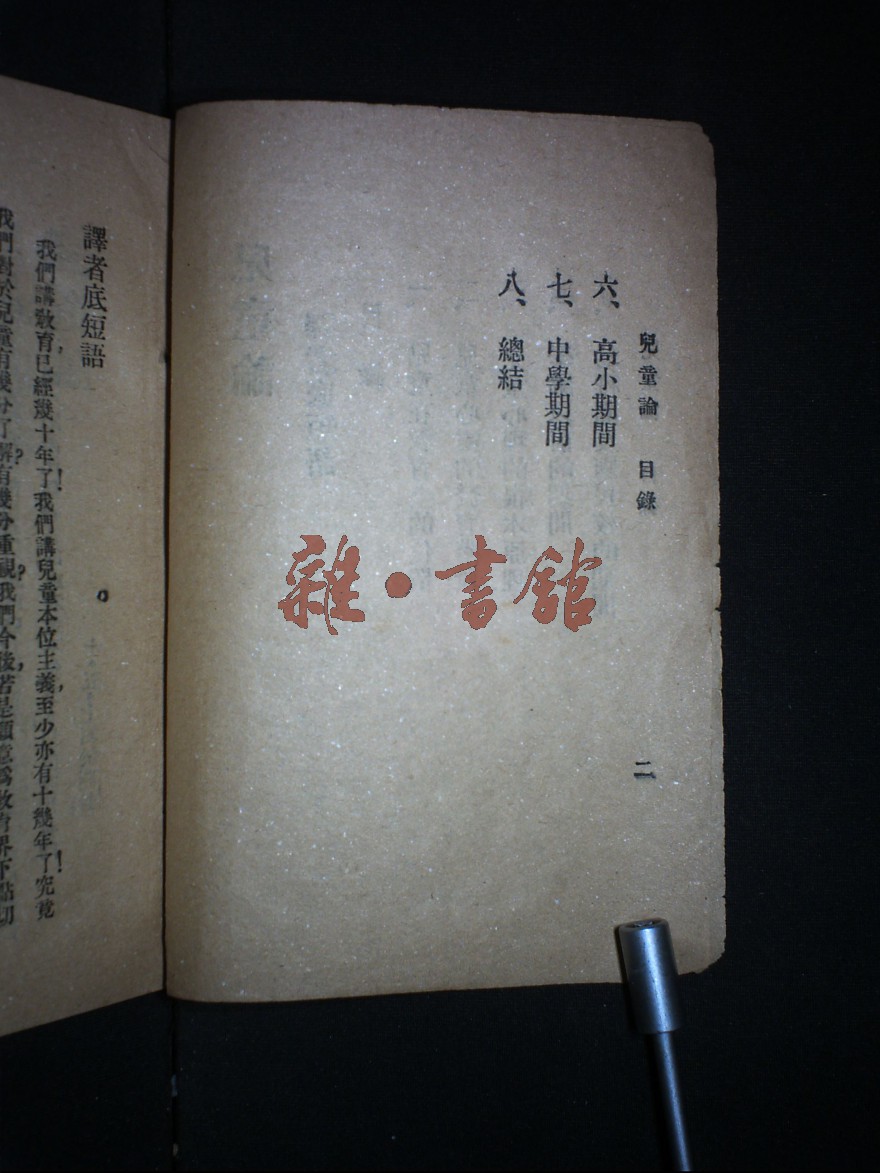 兒童論 目錄
六、高小期間
七、中學期間
八、總結
二
雜•書館
譯者底短語
我們講教育,已經幾十年了!我們講兒童本位主義,至少亦有十幾年了!究竟
我們對於兒童有幾分了解?有幾分重視?我們今後,若是願意爲教育界下點切